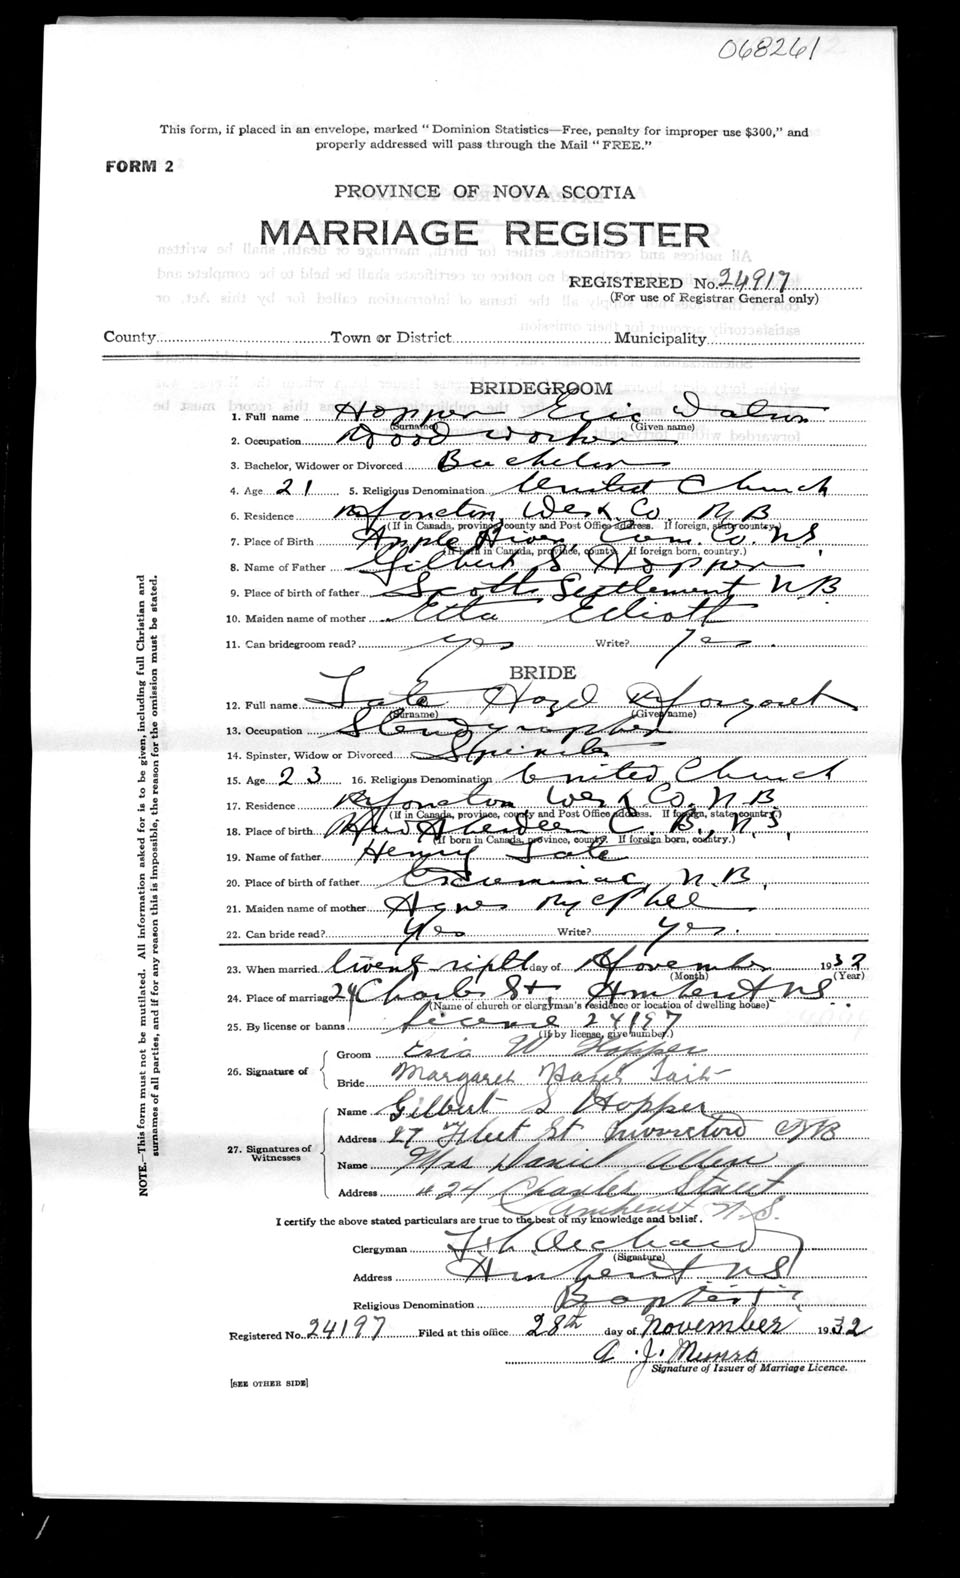 068261
This form, if placed in an envelope, marked "Dominion Statistics—Free, penalty for improper use $300," and
properly addressed will pass through the Mail "FREE."
FORM 2
PROVINCE OF NOVA SCOTIA
MARRIAGE REGISTER
REGISTERED No. 24917
(For use of Registrar General only)
County Town or District Municipality
BRIDEGROOM
1. Full name Hopper Eric
(Surname) (Given name)
2. Occupation Wood Worker
3. Bachelor, Widower or Divorced Bachelor
4. Age 21 5. Religious Denomination United Church
6. Residence Moncton West Co. N B
(If in Canada, province, county and Post Office address. If foreign, state country.)
7. Place of Birth Apple River, Cum. Co. N.S.
(If born in Canada, province, county. If foreign born, country.)
8. Name of Father Gilbert S Hopper
9. Place of birth of father Scott Settlement N.B
10. Maiden name of mother Etta Elliott
11. Can bridegroom read? Yes Write? Yes
BRIDE
12. Full name Tate Hazel Margaret
(Surname) (Given name)
13. Occupation Stenographer
14. Spinster, Widow or Divorced Spinster
15. Age 23 16. Religious Denomination United Church
17. Residence Moncton West Co. N.B.
(If in Canada, province, county and Post Office address. If foreign, state country.)
18. Place of birth New Aberdeen C. B., N.S,
(If born in Canada, province, county. If foreign born, country.)
19. Name of father Henry Tate
20. Place of birth of father Escuminac, N.B,
21. Maiden name of mother Agnes McPhee
22. Can bride read? Yes Write? Yes.
23. When married twenty sixth day of November 1932
(Month) (Year)
24. Place of marriage 24 Charles St, Amherst N.S.
(Name of church or clergyman's residence or location of dwelling house)
25. By license or banns License 24197
(If by license, give number.)
26. Signature of
Groom Eric W Hopper
Bride Margaret Hazel Tait
27. Signatures of Witnesses
Name Gilbert S Hopper
Address 27 Fleet St Moncton NB
Name Mrs Daniel Allen
Address # 24 Charles Street
Amherst N.S.
I certify the above stated particulars are true to the best of my knowledge and belief.
Clergyman
(Signature)
Address Amherst N.S.
Religious Denomination Baptist
Registered No. 24197 Filed at this office 28th day of November 1932
A. J. Munro
Signature of Issuer of Marriage Licence.
[SEE OTHER SIDE]
NOTE.—This form must not be mutilated. All information asked for is to be given, including full Christian and
surnames of all parties, and if for any reason this is impossible, the reason for the omission must be stated.